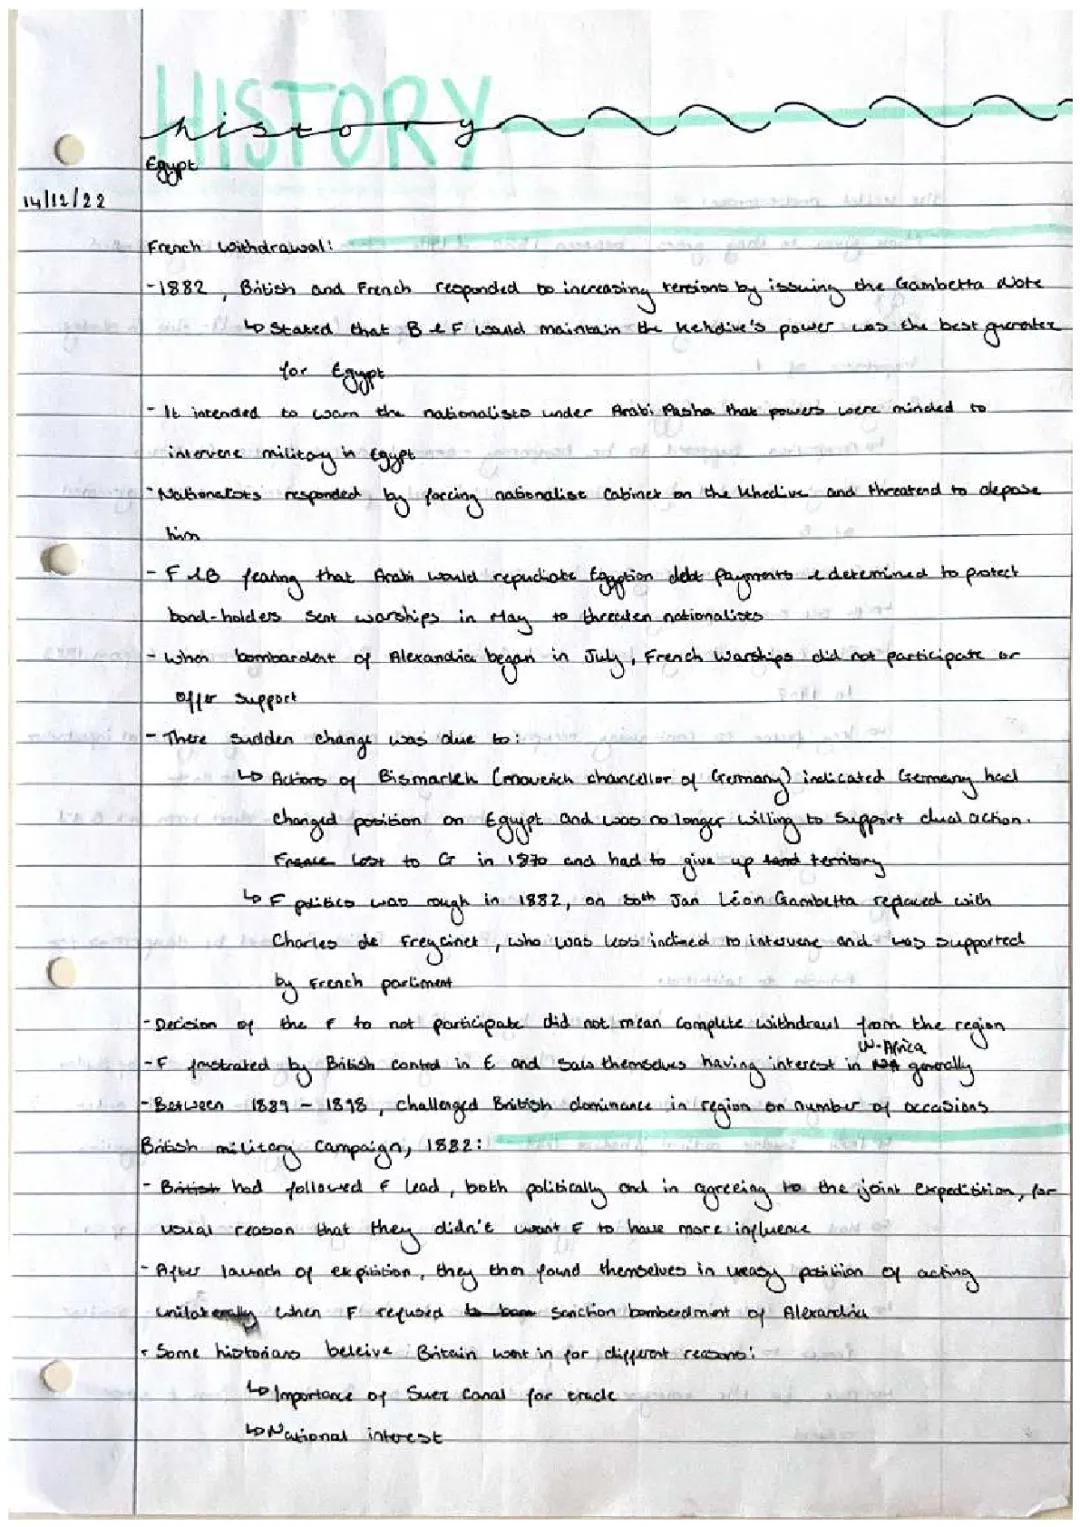 HISTORY
history
Egypt
14/12/22
French withdrawal:
- 1882, British and French responded to increasing tensions by issuing the Gambetta Note
↳ Stated that B & F would maintain the Kehdive's power was the best
for Egypt
- It intended to warn the nationalists under Arabi Pasha that powers were minded to
intervene military in Egypt
- Nationalists responded by forcing nationalist cabinet on the Khedive and threatend to depose
him
- F & B fearing that Arabi would repudiate Egyption debt payments & determined to protect
bond-holders sent warships in May to threaten nationalists
- When bombardent of Alexandria began in July, French warships did not participate or
offer support
- There sudden change was due to:
↳ Actions of Bismarkh (maverich chancellor of Germany) indicated Germany had
changed position on Egypt and was no longer willing to support dual action.
France lost to G in 1870 and had to give up land territory
↳ F politics was rough in 1882, on 30th Jan Léon Gambetta replaced with
Charles de Freycinet, who was less inclined to intervene and was supported
by French parliment
- Decision of the F to not participate did not mean complete withdrawl from the region
W-Africa
- F frustrated by British control in E and saw themselves having interest in NA generally
- Between 1889 - 1898, challenged British dominance in region on number of occasions
British military campaign, 1882:
- British had followed F lead, both politically and in agreeing to the joint expedition, for
usual reason that they didn't want F to have more influence
- After launch of expidition, they then found themselves in uneasy position of acting
unilaterally when F refused to bom sanction bomberdment of Alexandria
- Some historians beleive Britain went in for different reasons:
↳ Importance of Suez Canal for trade
↳ National interest